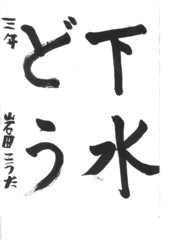 下水
どう
三年 岩田こうた